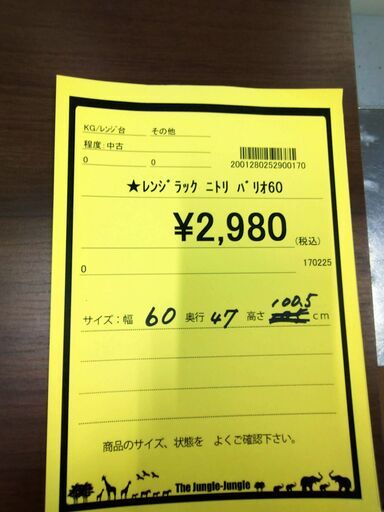 KG/レンジ台 その他
程度: 中古
0 0
2001280252900170
★レンジラック ニトリ バリオ60
¥2,980 (税込)
0 170225
サイズ: 幅 60 奥行 47 高さ 100.5 cm
商品のサイズ、状態を よくご確認下さい。
The Jungle-Jungle